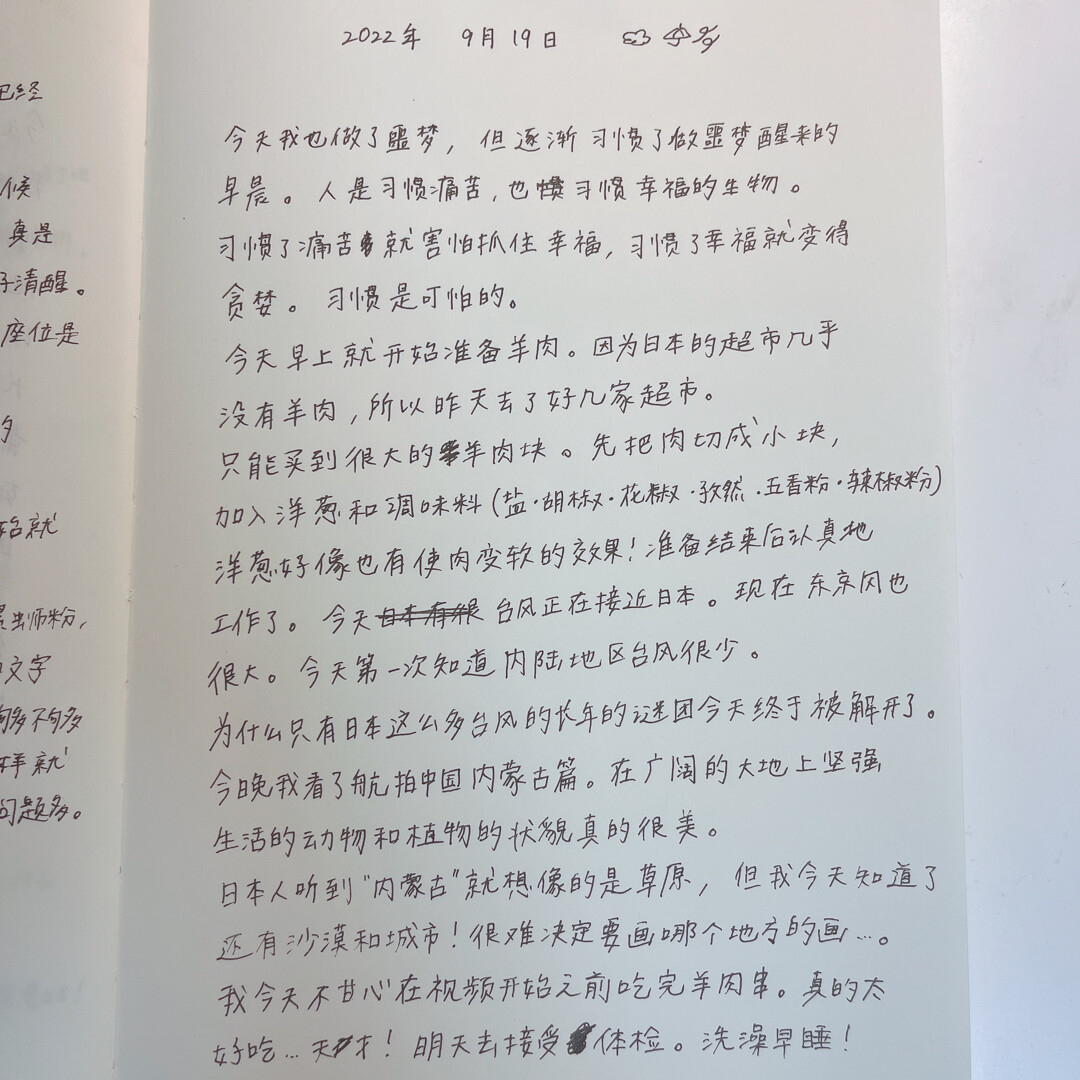 2022年 9月19日
已经
候
真是
子清醒。
座位是
多
始就
师粉,
文字
够多不够多
样就
问题多。
今天我也做了噩梦，但逐渐习惯了做噩梦醒来的
早晨。人是习惯痛苦，也习惯幸福的生物。
习惯了痛苦就害怕抓住幸福，习惯了幸福就变得
贪婪。习惯是可怕的。
今天早上就开始准备羊肉。因为日本的超市几乎
没有羊肉，所以昨天去了好几家超市。
只能买到很大的羊肉块。先把肉切成小块，
加入洋葱和调味料(盐·胡椒·花椒·孜然·五香粉·辣椒粉)
洋葱好像也有使肉变软的效果！准备结束后认真地
工作了。今天日本有很台风正在接近日本。现在东京风也
很大。今天第一次知道内陆地区台风很少。
为什么只有日本这么多台风的长年的谜团今天终于被解开了。
今晚我看了航拍中国内蒙古篇。在广阔的大地上坚强
生活的动物和植物的状貌真的很美。
日本人听到“内蒙古”就想像的是草原，但我今天知道了
还有沙漠和城市！很难决定要画哪个地方的画…。
我今天不甘心在视频开始之前吃完羊肉串。真的太
好吃…天才！明天去接受体检。洗澡早睡！